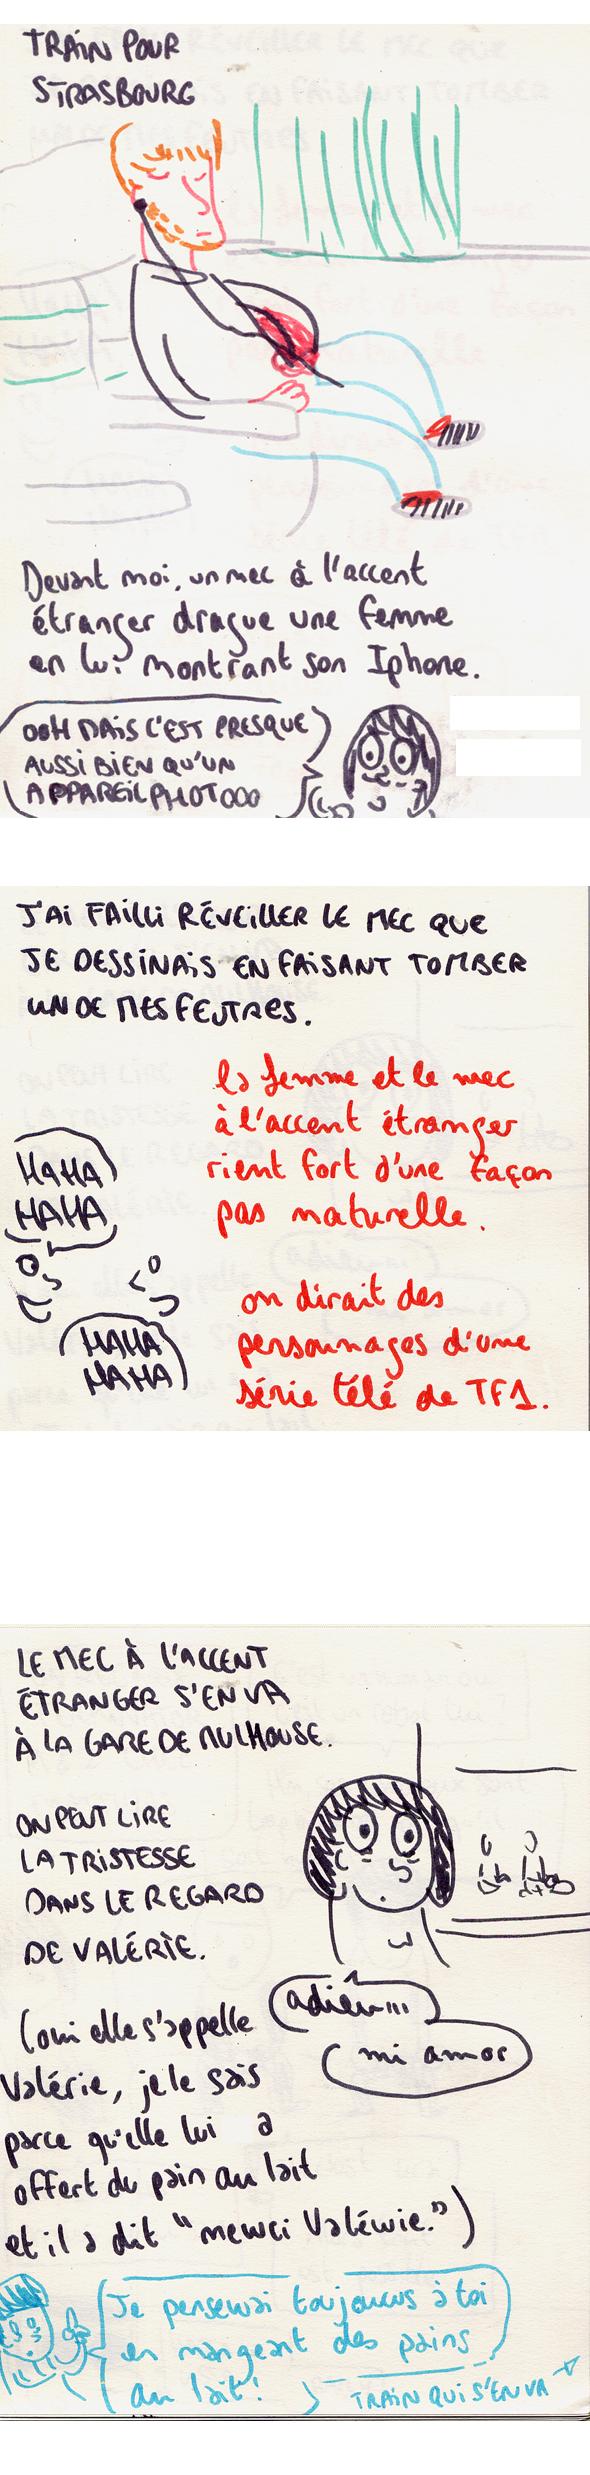 TRAIN POUR
STRASBOURG
Devant moi, un mec à l'accent
étranger drague une femme
en lui montrant son Iphone.
OOH MAIS C'EST PRESQUE
AUSSI BIEN QU'UN
APPAREIL PHOTOOO
J'AI FAILLI RÉVEILLER LE MEC QUE
JE DESSINAIS EN FAISANT TOMBER
UN DE MES FEUTRES.
la femme et le mec
à l'accent étranger
rient fort d'une façon
pas naturelle.
HAHA
HAHA
HAHA
HAHA
on dirait des
personnages d'une
série télé de TF1.
LE MEC À L'ACCENT
ÉTRANGER S'EN VA
À LA GARE DE MULHOUSE.
ON PEUT LIRE
LA TRISTESSE
DANS LE REGARD
DE VALÉRIE.
adieu...
mi amor
(oui elle s'appelle
Valérie, je le sais
parce qu'elle lui a
offert du pain au lait
et il a dit "mewci Valéwie.")
Je pensewai toujouws à toi
en mangeant des pains
au lait!
TRAIN QUI S'EN VA